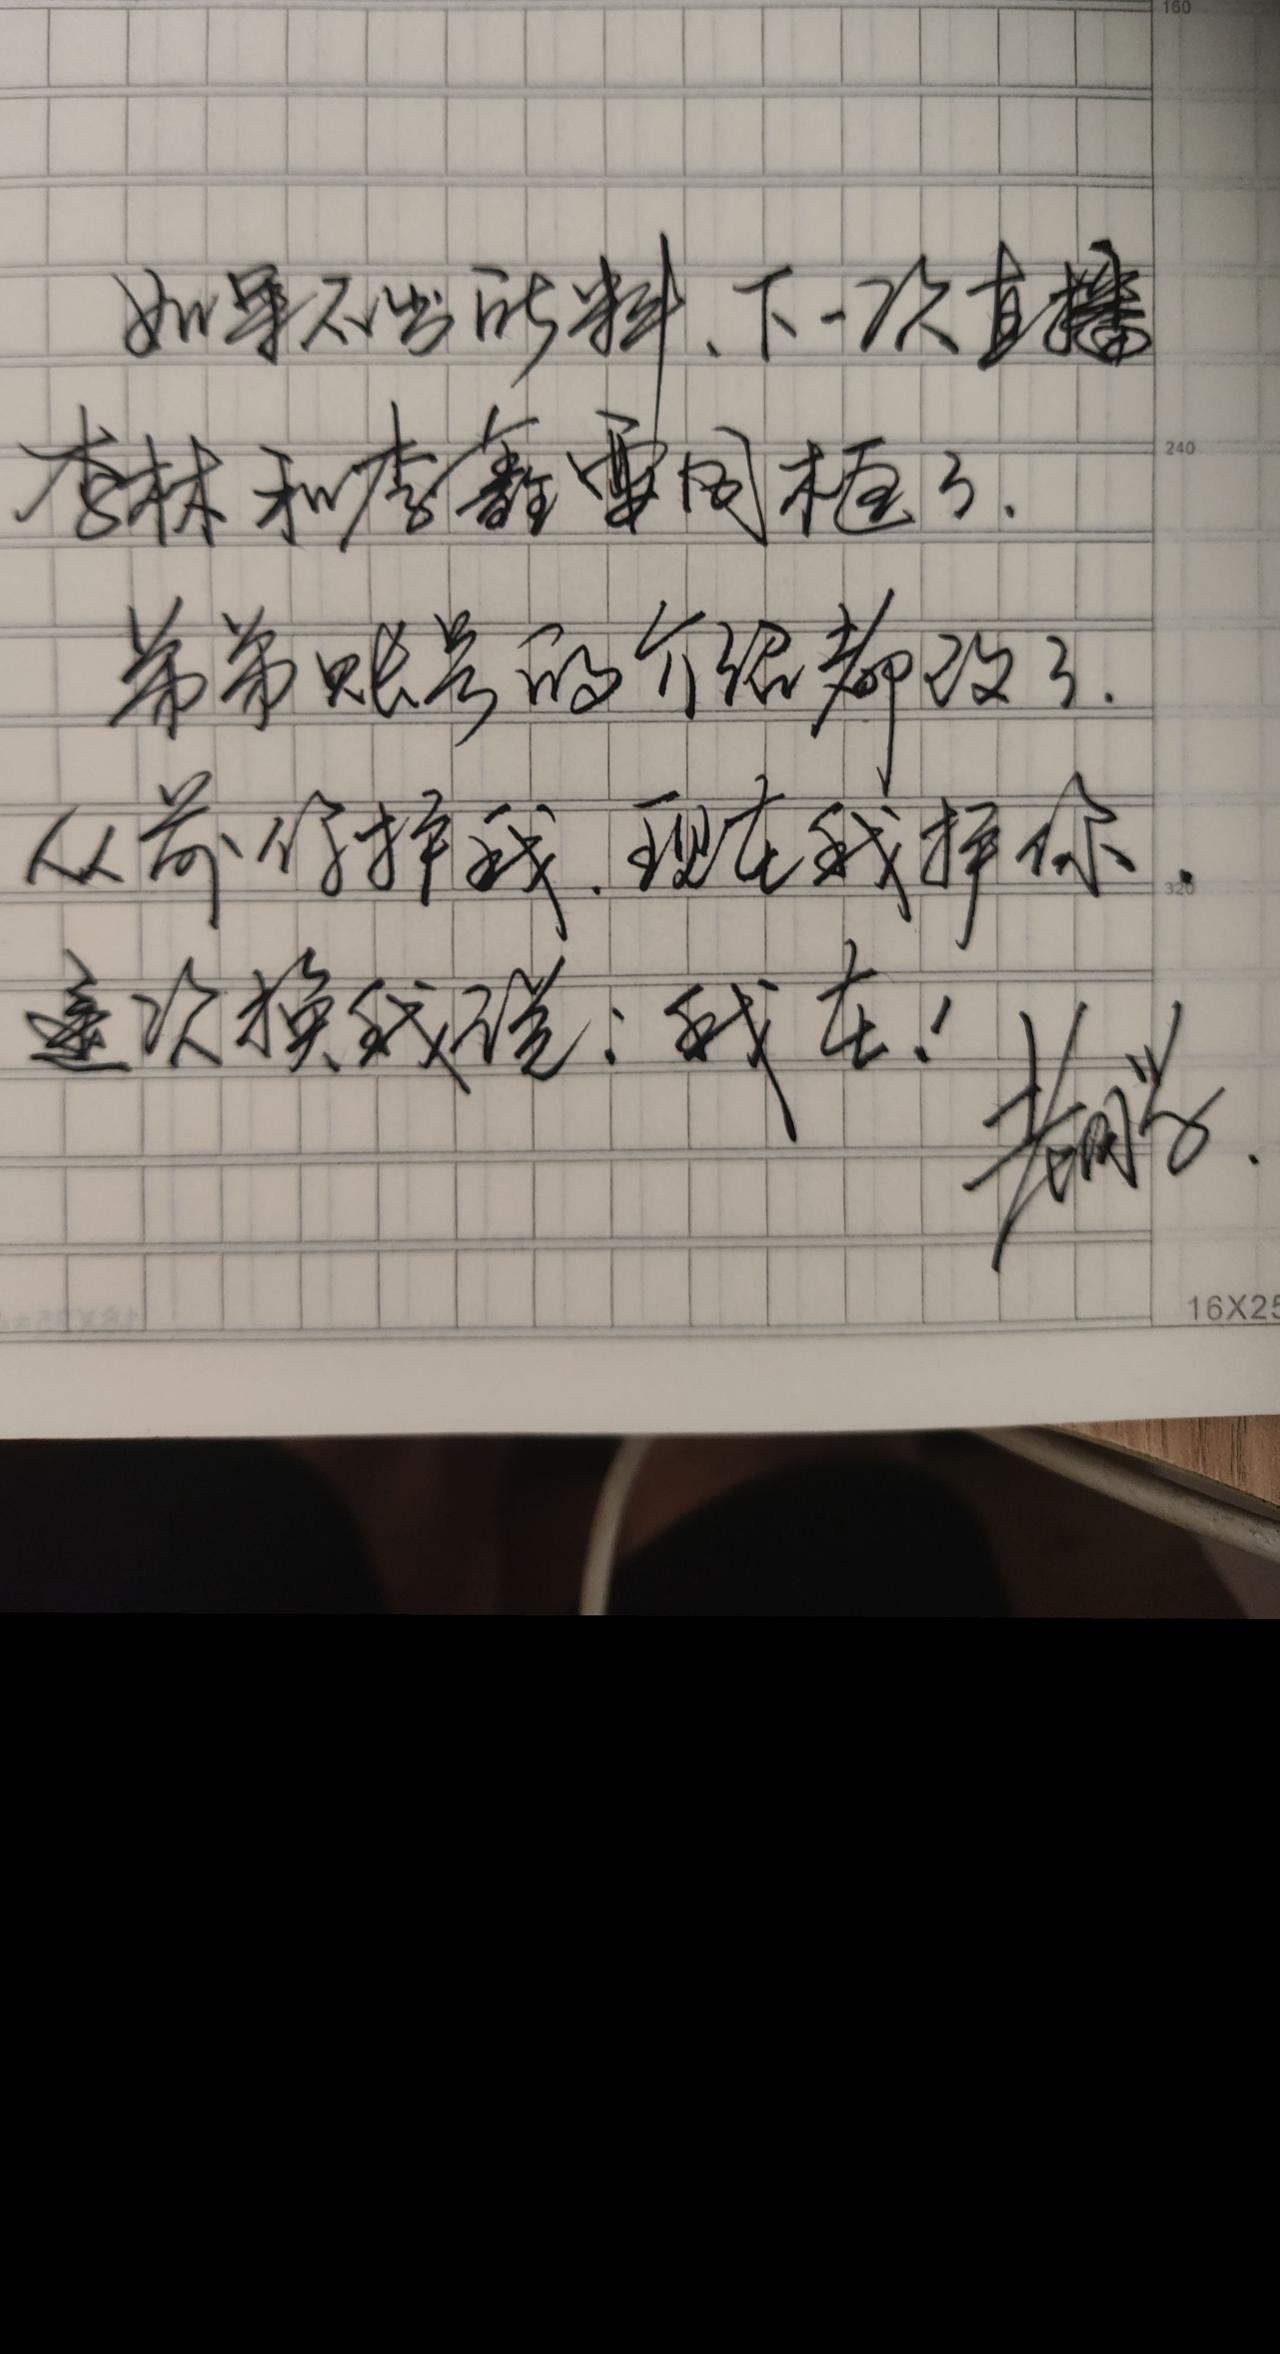 160
如果不出所料、下一次直播
李林和李鑫雷同框了.
240
弟弟账号的介绍都改了.
从前你护我.现在我护你.
320
这次换我说：我在！
老同学.
16X25